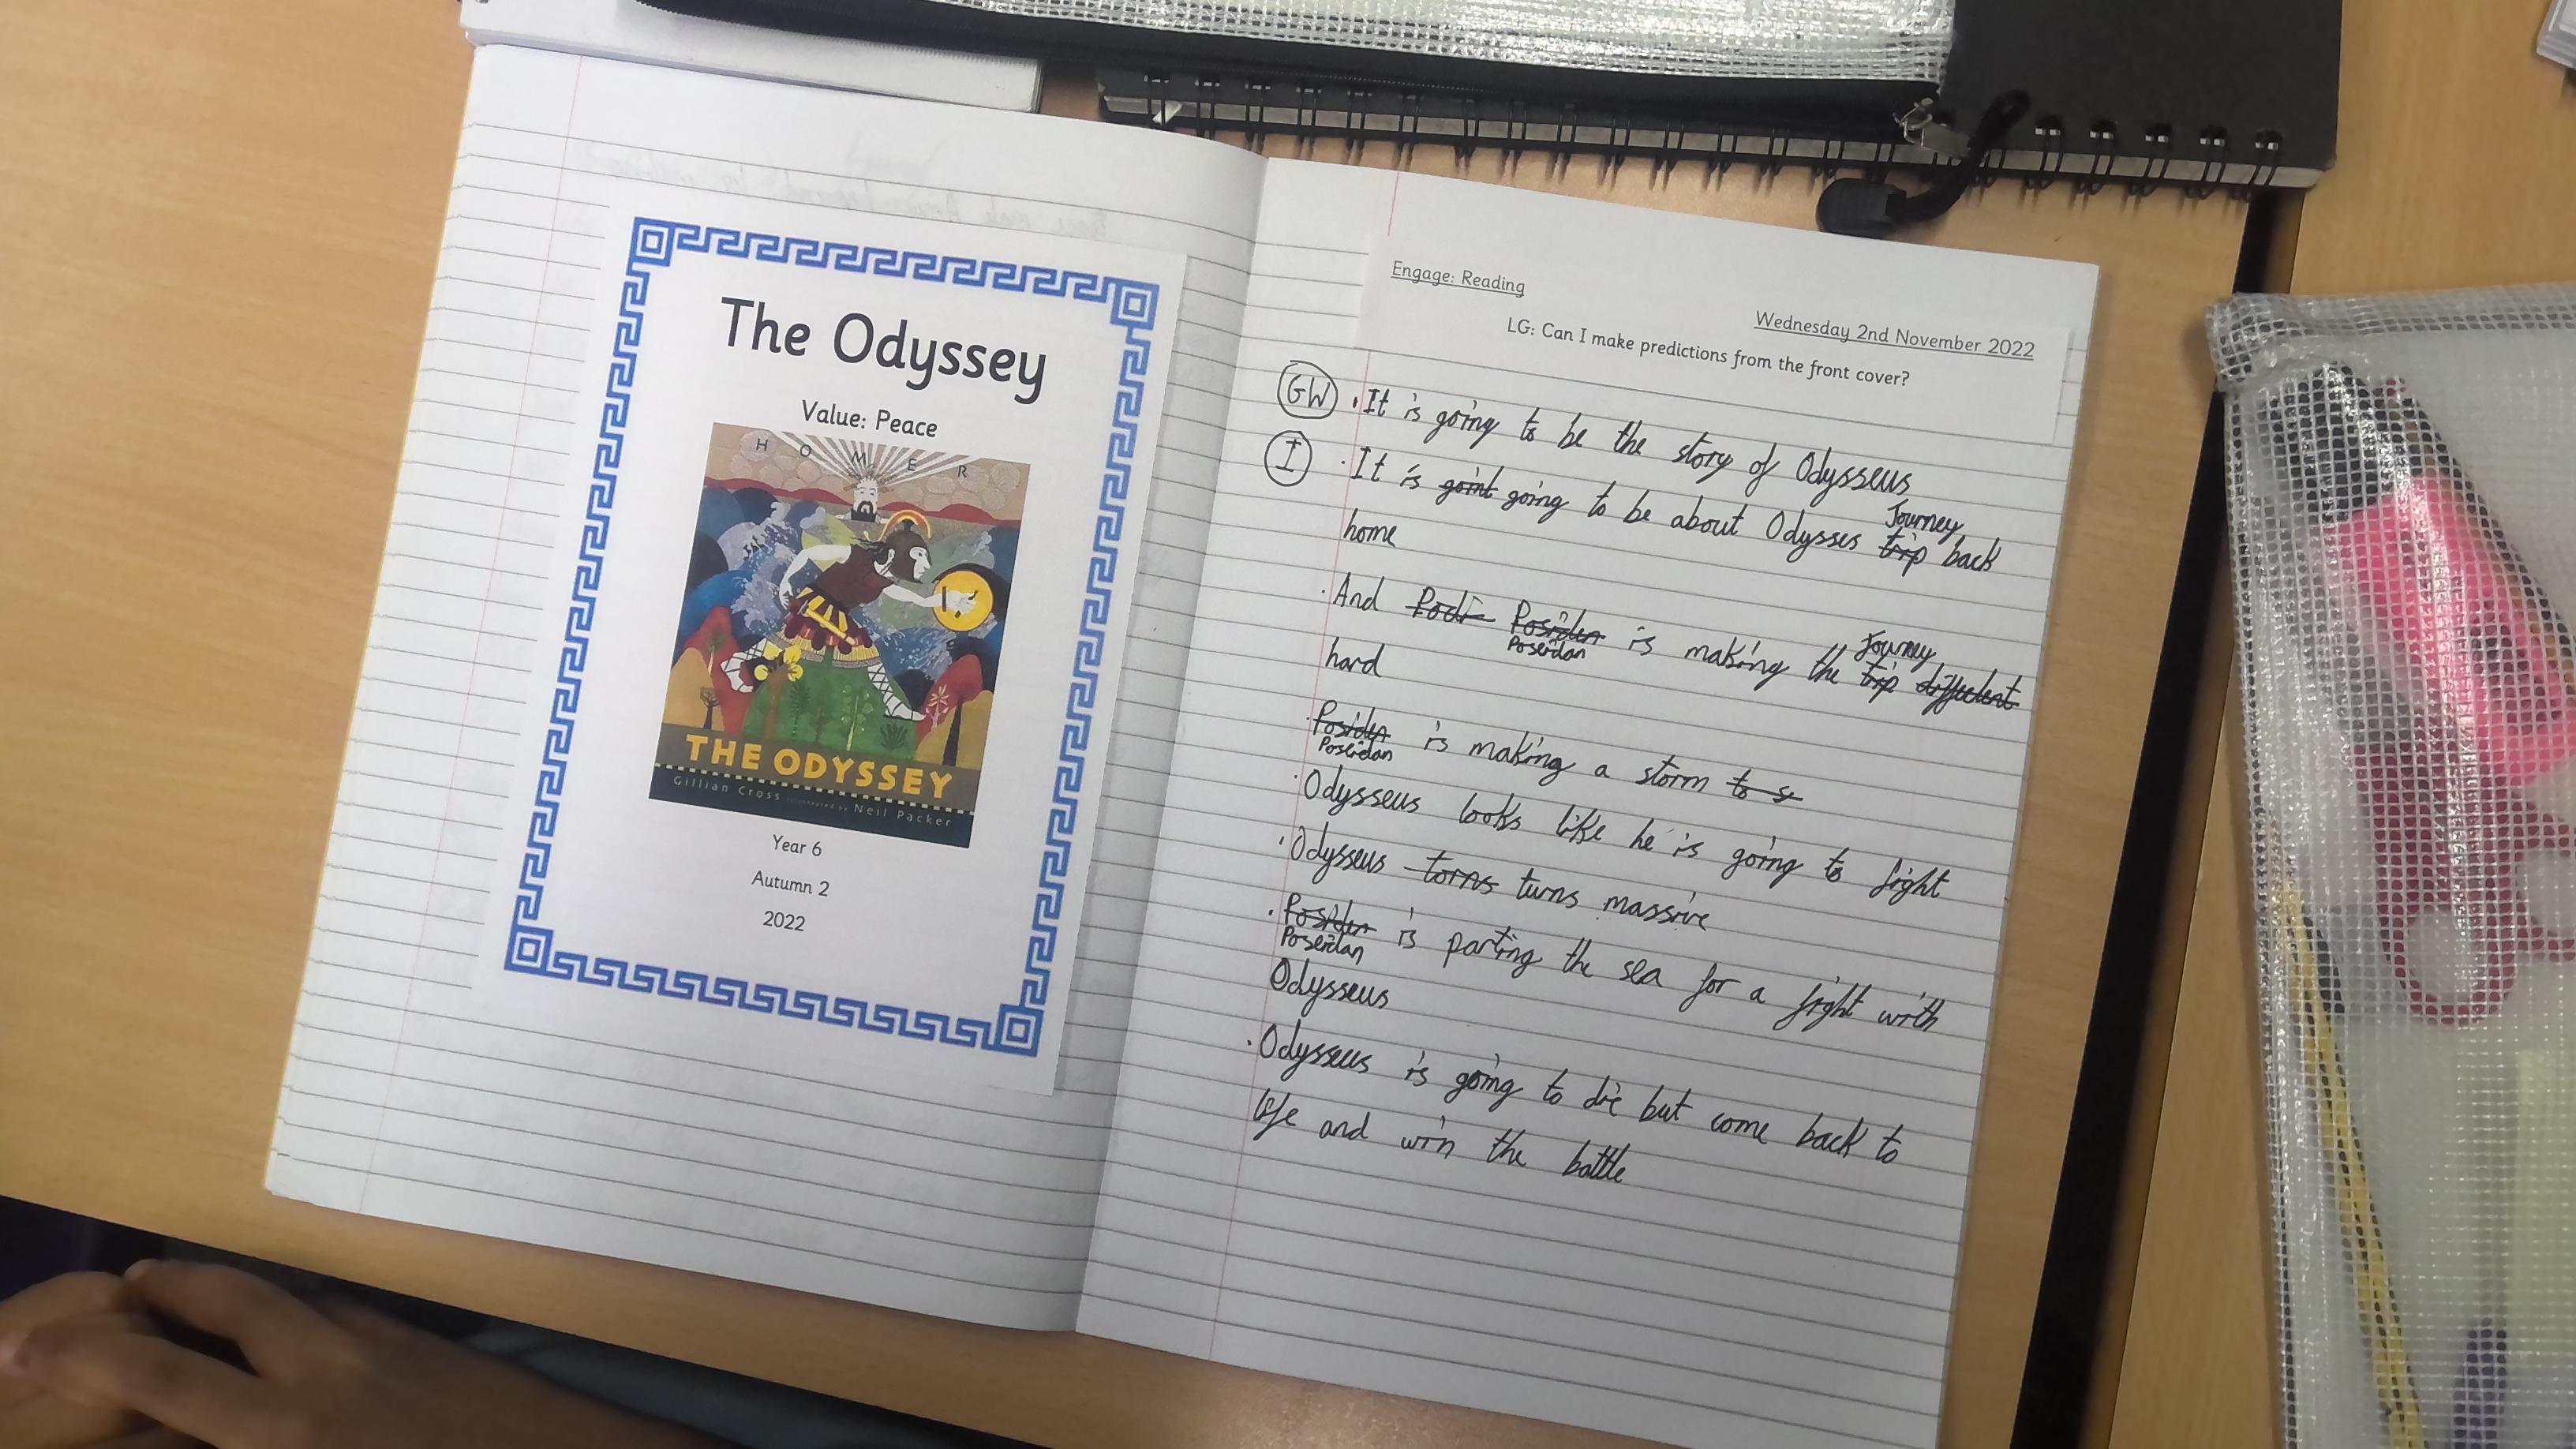 The Odyssey
Value: Peace
HOMER
THE ODYSSEY
Gillian Cross illustrated by Neil Packer
Year 6
Autumn 2
2022
Engage: Reading
Wednesday 2nd November 2022
LG: Can I make predictions from the front cover?
GW · It is going to be the story of Odysseus
I · It is goint going to be about Odysses trip Journey back
home
· And Podi Posiden Poseidan is making the trip Journey diffeclent
hard
· Posiden Poseidan is making a storm to s
· Odysseus looks like he is going to fight
· Odysseus torns turns massive
· Posiden Poseidan is parting the sea for a fight with
Odysseus
· Odysseus is going to die but come back to
life and win the battle